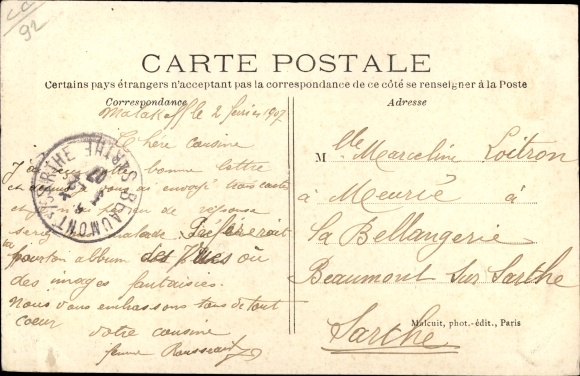 CC
92
CARTE POSTALE
Certains pays étrangers n'acceptant pas la correspondance de ce côté se renseigner à la Poste
Correspondance
Adresse
Malakoff le 2 février 1907
Chère cousine
bonne lettre
et envoyé carte
et de reponse
malade Préférerait
pour ton album des Vues où
des images fantaisies.
Nous vous embrassons tous de tout
coeur
votre cousine
BEAUMONT-S-SARTHE SARTHE
Mlle Marceline Loitron
à Meurié à
la Bellangerie
Beaumont Sur Sarthe
Malcuit, phot.-édit., Paris
Sarthe